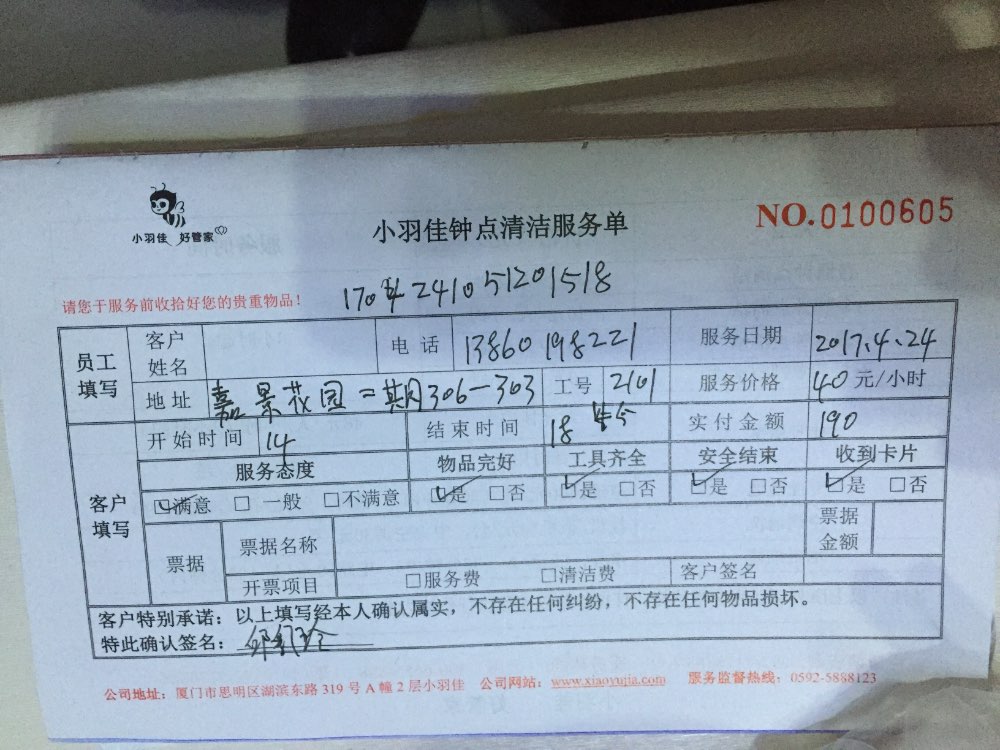 小羽佳 好管家
小羽佳钟点清洁服务单
NO.0100605
请您于服务前收拾好您的贵重物品！
1704241051201518
员工填写 客户姓名 电话 13860198221 服务日期 2017.4.24
地址 嘉景花园二期306-303 工号 2101 服务价格 40元/小时
客户填写 开始时间 14 结束时间 18 实付金额 190
服务态度 物品完好 工具齐全 安全结束 收到卡片
☑满意 □一般 □不满意 ☑是 □否 ☑是 □否 ☑是 □否 ☑是 □否
票据 票据名称 票据金额
开票项目 □服务费 □清洁费 客户签名
客户特别承诺：以上填写经本人确认属实，不存在任何纠纷，不存在任何物品损坏。
特此确认签名：
公司地址：厦门市思明区湖滨东路 319 号 A 幢 2 层小羽佳 公司网站：www.xiaoyujia.com 服务监督热线：0592-5888123